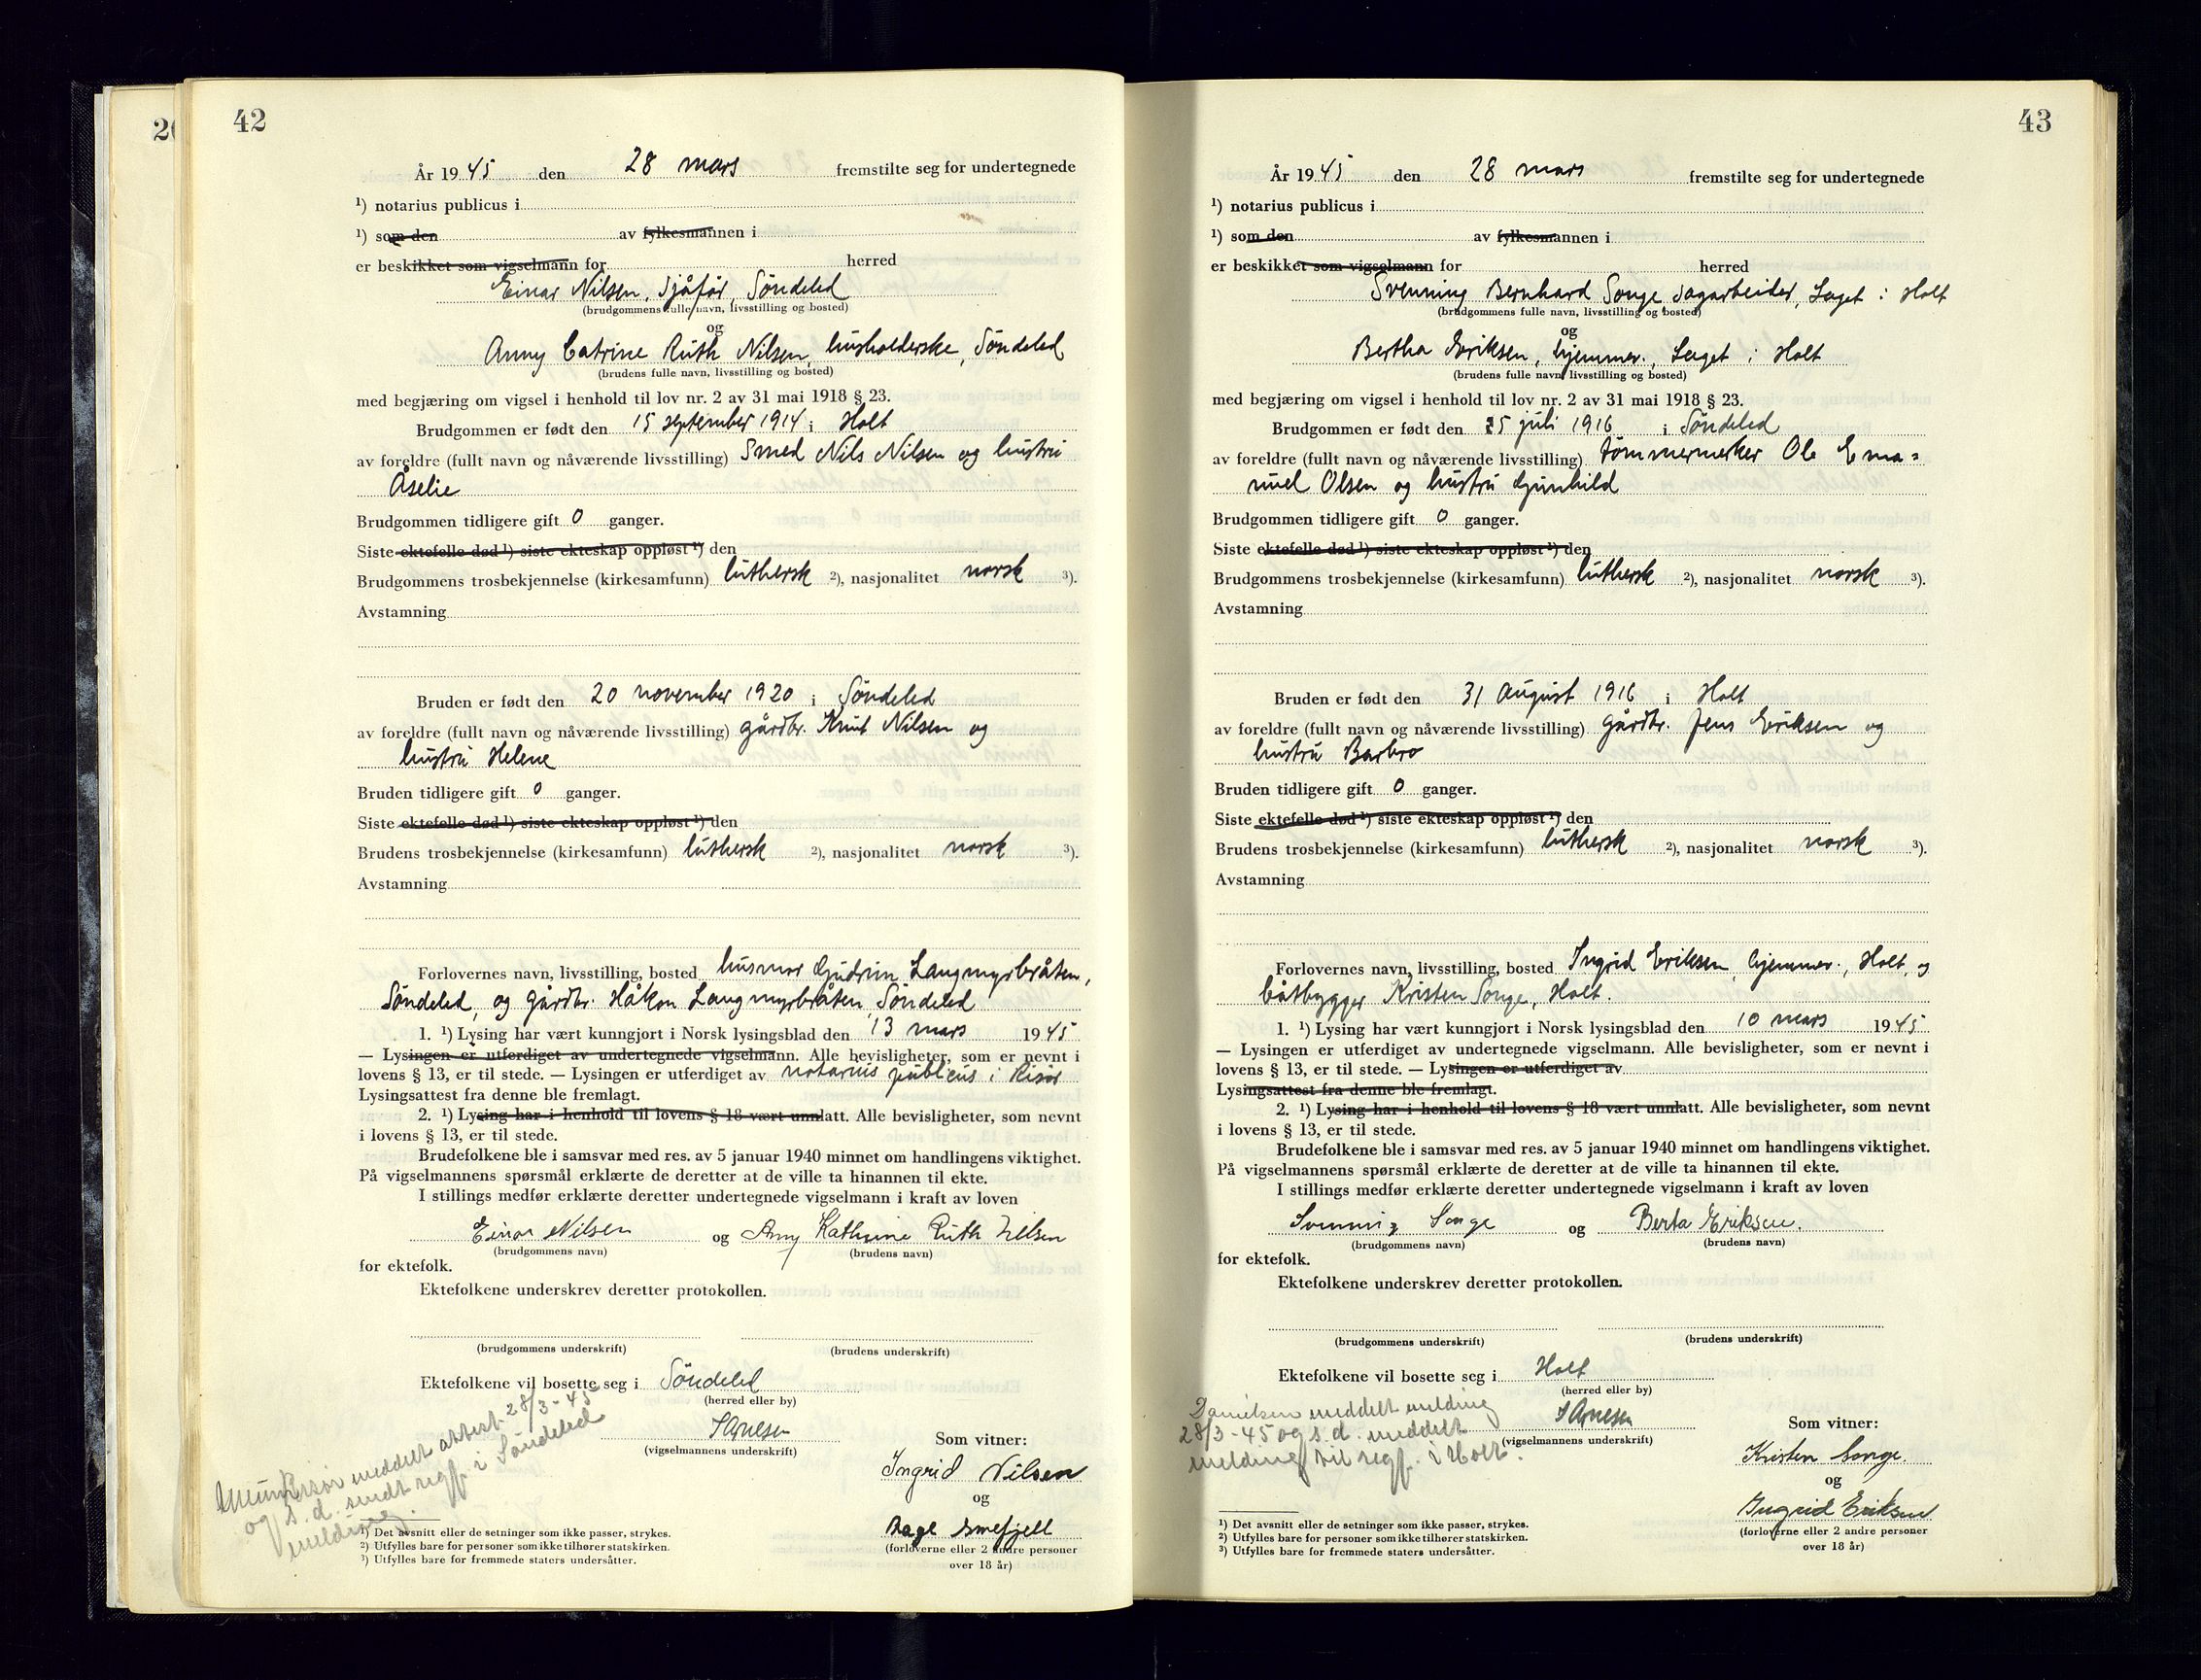 42
År 1945 den 28 mars fremstilte seg for undertegnede
¹) notarius publicus i
¹) som den av fylkesmannen i
er beskikket som vigselmann for herred
Einar Nilsen, sjåfør, Söndeled
(brudgommens fulle navn, livsstilling og bosted)
og
Anny Catrine Ruth Nilsen, husholderske, Söndeled
(brudens fulle navn, livsstilling og bosted)
med begjæring om vigsel i henhold til lov nr. 2 av 31 mai 1918 § 23.
Brudgommen er født den 15 september 1914 i Holt
av foreldre (fullt navn og nåværende livsstilling) Smed Nils Nilsen og hustru
Åselie
Brudgommen tidligere gift 0 ganger.
Siste ektefelle død ¹) siste ekteskap oppløst ¹) den
Brudgommens trosbekjennelse (kirkesamfunn) luthersk ²), nasjonalitet norsk ³).
Avstamning
Bruden er født den 20 november 1920 i Söndeled
av foreldre (fullt navn og nåværende livsstilling) gårdbr. Knut Nilsen og
hustru Helene
Bruden tidligere gift 0 ganger.
Siste ektefelle død ¹) siste ekteskap oppløst ¹) den
Brudens trosbekjennelse (kirkesamfunn) luthersk ²), nasjonalitet norsk ³).
Avstamning
Forlovernes navn, livsstilling, bosted husmor Gudrun Langmyrbråten,
Söndeled, og gårdbr. Håkon Langmyrbråten, Söndeled
1. ¹) Lysing har vært kunngjort i Norsk lysingsblad den 13 mars 1945
— Lysingen er utferdiget av undertegnede vigselmann. Alle bevisligheter, som er nevnt i
lovens § 13, er til stede. — Lysingen er utferdiget av notarius publicus i Risør
Lysingsattest fra denne ble fremlagt.
2. ¹) Lysing har i henhold til lovens § 18 vært unnlatt. Alle bevisligheter, som nevnt
i lovens § 13, er til stede.
Brudefolkene ble i samsvar med res. av 5 januar 1940 minnet om handlingens viktighet.
På vigselmannens spørsmål erklærte de deretter at de ville ta hinannen til ekte.
I stillings medfør erklærte deretter undertegnede vigselmann i kraft av loven
Einar Nilsen og Anny Kathrine Ruth Nilsen
(brudgommens navn) (brudens navn)
for ektefolk.
Ektefolkene underskrev deretter protokollen.
(brudgommens underskrift) (brudens underskrift)
Ektefolkene vil bosette seg i Söndeled
(herred eller by)
(vigselmannens underskrift)
Som vitner:
Ingrid Nilsen
og
(forloverne eller 2 andre personer
over 18 år)
meddelt attest 28/3-45
og s.d. sendt regf. i Söndeled
melding.
¹) Det avsnitt eller de setninger som ikke passer, strykes.
²) Utfylles bare for personer som ikke tilhører statskirken.
³) Utfylles bare for fremmede staters undersåtter.
43
År 1945 den 28 mars fremstilte seg for undertegnede
¹) notarius publicus i
¹) som den av fylkesmannen i
er beskikket som vigselmann for herred
Svenning Bernhard Songe sagarbeider, Laget i Holt
(brudgommens fulle navn, livsstilling og bosted)
og
Bertha Eriksen, hjemmev., Laget i Holt
(brudens fulle navn, livsstilling og bosted)
med begjæring om vigsel i henhold til lov nr. 2 av 31 mai 1918 § 23.
Brudgommen er født den 25 juli 1916 i Söndeled
av foreldre (fullt navn og nåværende livsstilling) tømmermerker Ole Ema=
nuel Olsen og hustru Gunhild
Brudgommen tidligere gift 0 ganger.
Siste ektefelle død ¹) siste ekteskap oppløst ¹) den
Brudgommens trosbekjennelse (kirkesamfunn) luthersk ²), nasjonalitet norsk ³).
Avstamning
Bruden er født den 31 august 1916 i Holt
av foreldre (fullt navn og nåværende livsstilling) gårdbr. Jens Eriksen og
hustru Barbro
Bruden tidligere gift 0 ganger.
Siste ektefelle død ¹) siste ekteskap oppløst ¹) den
Brudens trosbekjennelse (kirkesamfunn) luthersk ²), nasjonalitet norsk ³).
Avstamning
Forlovernes navn, livsstilling, bosted Ingrid Eriksen, hjemmev., Holt, og
båtbygger Kristen Songe, Holt.
1. ¹) Lysing har vært kunngjort i Norsk lysingsblad den 10 mars 1945
— Lysingen er utferdiget av undertegnede vigselmann. Alle bevisligheter, som er nevnt i
lovens § 13, er til stede. — Lysingen er utferdiget av
Lysingsattest fra denne ble fremlagt.
2. ¹) Lysing har i henhold til lovens § 18 vært unnlatt. Alle bevisligheter, som nevnt
i lovens § 13, er til stede.
Brudefolkene ble i samsvar med res. av 5 januar 1940 minnet om handlingens viktighet.
På vigselmannens spørsmål erklærte de deretter at de ville ta hinannen til ekte.
I stillings medfør erklærte deretter undertegnede vigselmann i kraft av loven
Svenning Songe og Berta Eriksen.
(brudgommens navn) (brudens navn)
for ektefolk.
Ektefolkene underskrev deretter protokollen.
(brudgommens underskrift) (brudens underskrift)
Ektefolkene vil bosette seg i Holt
(herred eller by)
Danielsen meddelt melding
28/3-45 og s.d. meddelt
melding til regf. i Holt.
(vigselmannens underskrift)
Som vitner:
Kristen Songe.
og
Ingrid Eriksen
(forloverne eller 2 andre personer
over 18 år)
¹) Det avsnitt eller de setninger som ikke passer, strykes.
²) Utfylles bare for personer som ikke tilhører statskirken.
³) Utfylles bare for fremmede staters undersåtter.